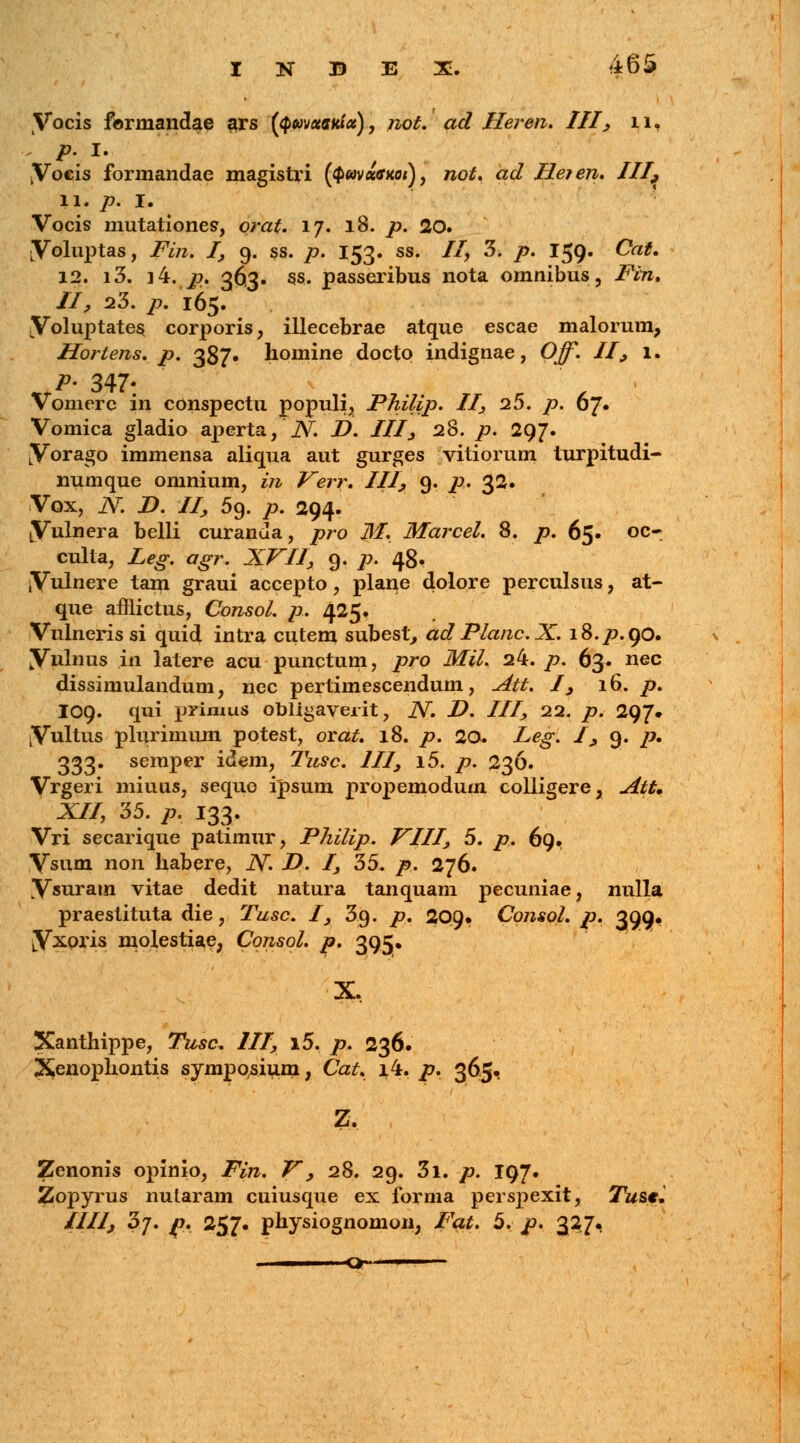 INDEX. 465
Vocis formandae ars (φωνασκία), not. ad Heren. III, 11.
p. 1.
Vocis formandae magistri (φωνάσκοι), not. ad Heren. III,
11. p. 1.
Vocis mutationes, orat. 17. 18. p. 20.
Voluptas, Fin. I, 9. ss. p. 153. ss. II, 3. p. 159. Cat.
12. 13. 14. p. 363. ss. passeribus nota omnibus, Fin.
II, 23. p. 165.
Voluptates corporis, illecebrae atque escae malorum,
Hortens. p. 387. homine docto indignae, Off. II, 1.
p. 347.
Vomere in conspectu populi, Philip. II, 25. p. 67.
Vomica gladio aperta, N. D. III, 28. p. 297.
Vorago immensa aliqua aut gurges vitiorum turpitudi-
numque omnium, in Verr. III, 9. p. 32.
Vox, N. D. II, 59. p. 294.
Vulnera belli curanda, pro M. Marcel. 8. p. 65. oc-
culta, Leg. agr. XVII, 9. p. 48.
Vulnere tam graui accepto, plane dolore perculsus, at-
que afflictus, Consol. p. 425.
Vulneris si quid intra cutem subest, ad Planc. X. 18. p. 90.
Vulnus in latere acu punctum, pro Mil. 24. p. 63. nec
dissimulandum, nec pertimescendum, Att. I, 16. p.
109. qui primus obligaverit, N. D. III, 22. p. 297.
Vultus plurimum potest, orat. 18. p. 20. Leg. I, 9. p.
333. semper idem, Tusc. III, 15. p. 236.
Vrgeri miuus, sequo ipsum propemodum colligere, Att.
XII, 35. p. 133.
Vri secarique patimur, Philip. VIII, 5. p. 69.
Vsum non habere, N. D. I, 35. p. 276.
Vsuram vitae dedit natura tanquam pecuniae, nulla
praestituta die, Tusc. I, 39. p. 209. Consol. p. 399.
Vxoris molestiae, Consol. p. 395.
X.
Xanthippe, Tusc. III, 15. p. 236.
Xenophontis symposium, Cat. 14. p. 365.
Z.
Zenonis opinio, Fin. V, 28. 29. 31. p. 197.
Zopyrus nutaram cuiusque ex forma perspexit, Tusc.
IIII, 37. p. 257. physiognomon, Fat. 5. p. 327.